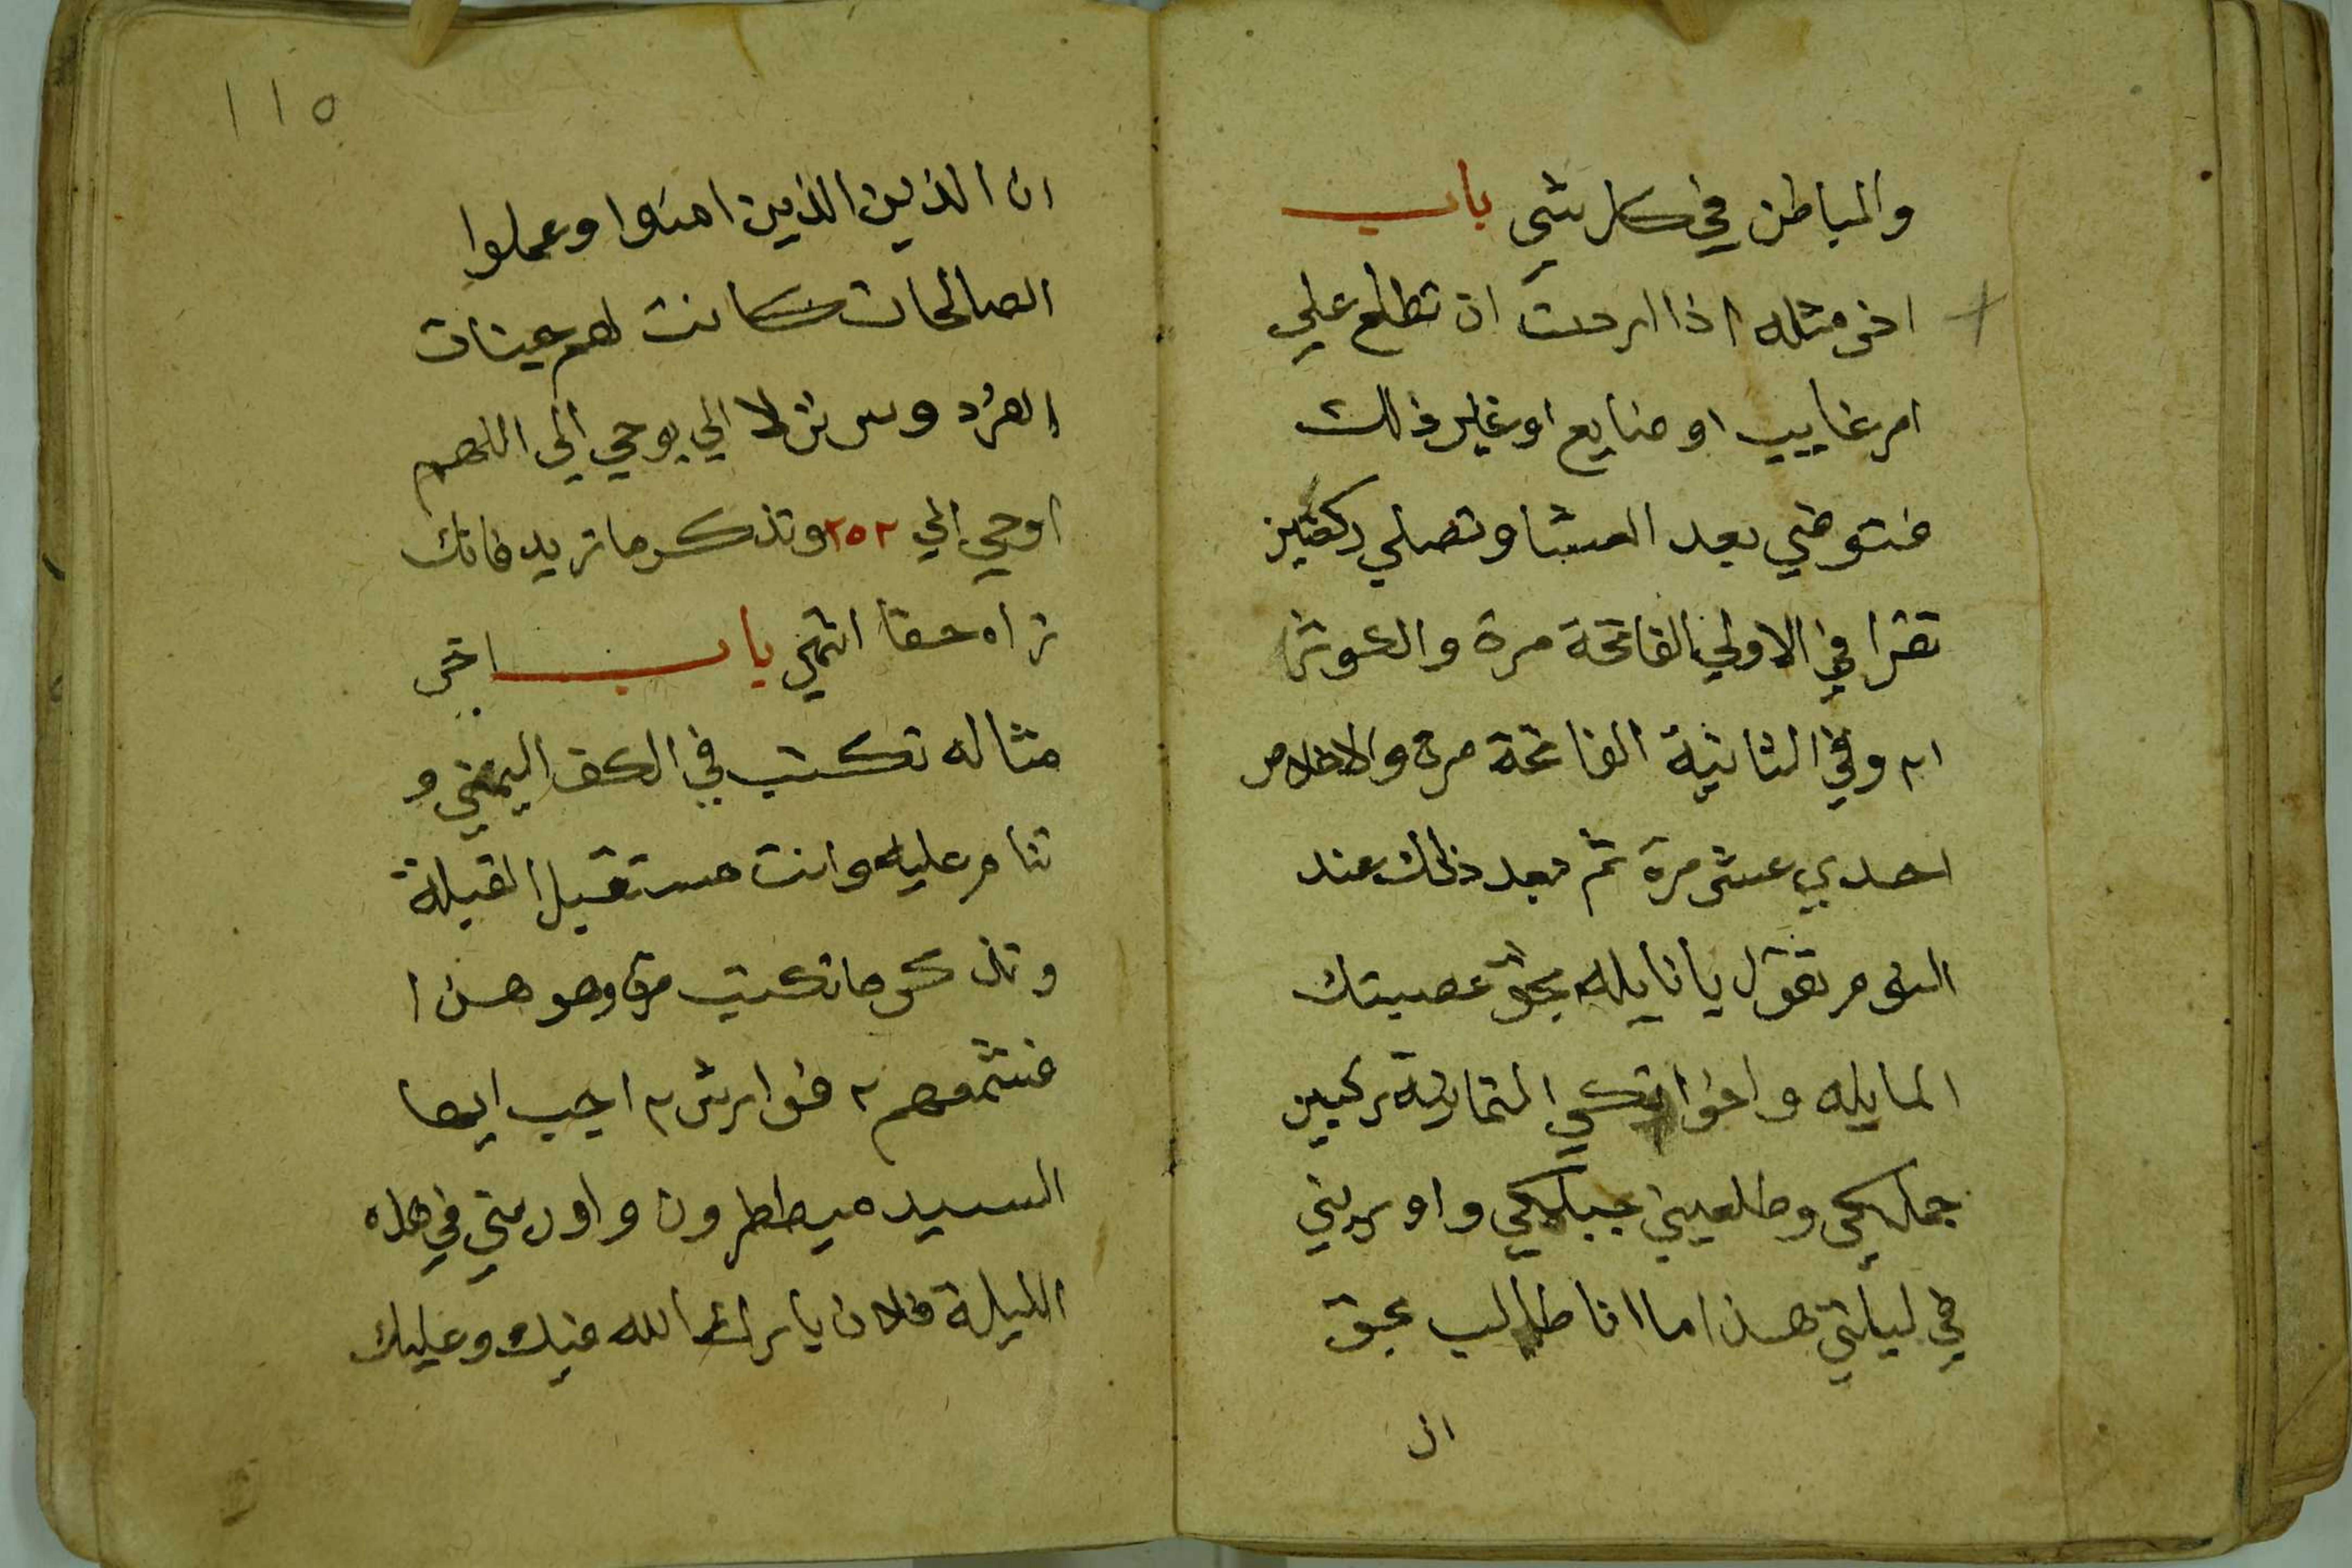 والباطن في كل شي باب
اخر مثله اذا اردت ان تطلع علي
امر غايب او ضايع او غير ذلك
فتوضي بعد العشا وتصلي ركعتين
تقرا في الاولي الفاتحة مرة والكوثر
١٢ وفي الثانية الفاتحة مرة والاخلاص
احدي عشر مرة ثم بعد ذلك عند
النوم تقول يا نايله بحق عصبتك
المايله واخواتكي الثمانية ركبين
جملكي وطلعيني جبلكي واوريني
في ليلتي هذا ما انا طالب بحق
ان
١١٥
ان الذين الذين امنوا وعملوا
الصالحات كانت لهم جنات
الفردوس نزلا الي يوحي الي اللهم
اوحي الي ٢٥٢ وتذكر ما تريد فانك
تراه حقا انتهي باب اخر
مثاله تكتب في الكف اليمني و
تنام عليه وانت مستقبل القبلة
وتذكر ما تكتب مرة وهو هذا
٢ ٢ اجب ايها
السيد ميططرون واوريني في هذه
الليلة فلان بارك الله فيك وعليك